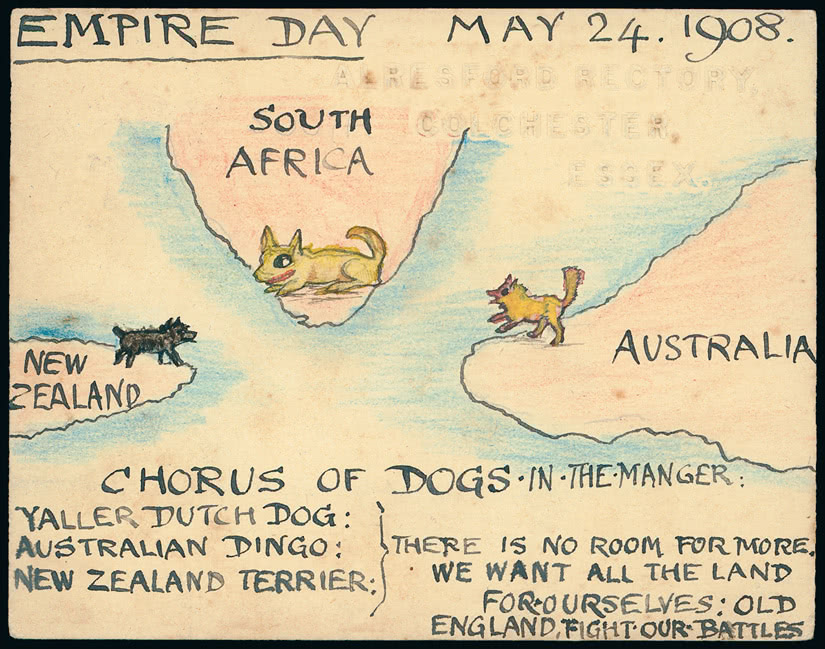 EMPIRE DAY MAY 24. 1908.
ALRESFORD RECTORY,
COLCHESTER,
ESSEX.
SOUTH
AFRICA
NEW
ZEALAND
AUSTRALIA
CHORUS OF DOGS·IN·THE·MANGER:
YALLER DUTCH DOG:
AUSTRALIAN DINGO:
NEW ZEALAND TERRIER:
THERE IS NO ROOM FOR MORE.
WE WANT ALL THE LAND
FOR·OURSELVES: OLD
ENGLAND, FIGHT·OUR·BATTLES